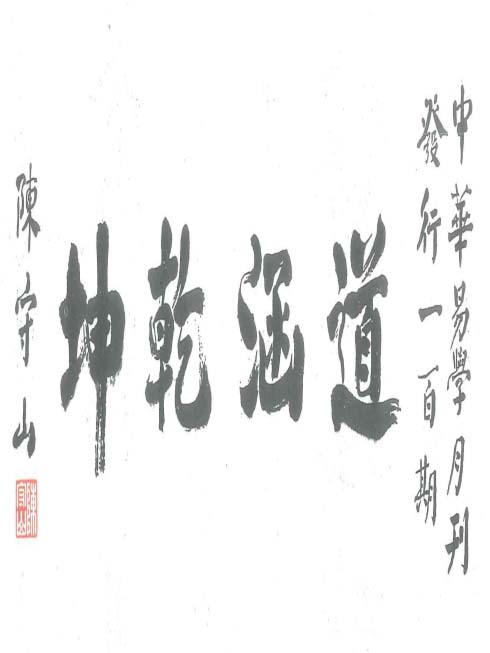 中華易學月刊
發行一百期
道涵乾坤
陳守山
陳守山